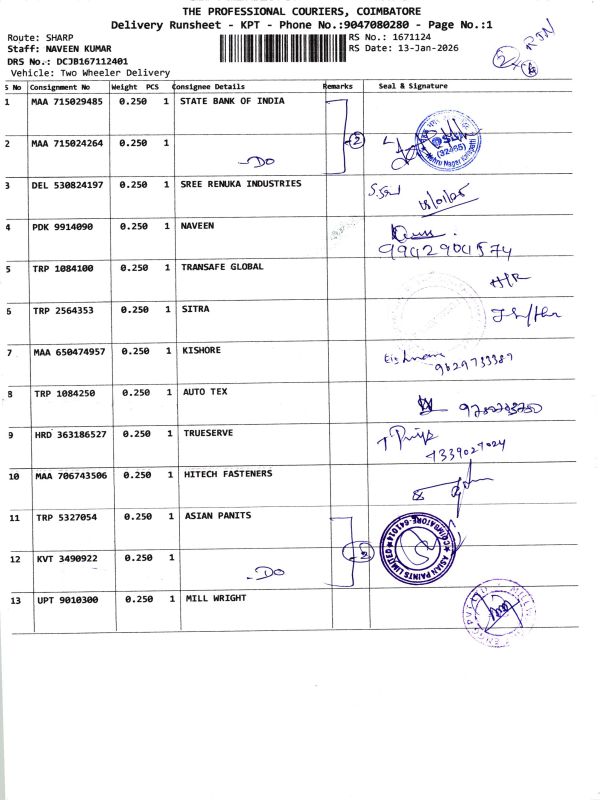 THE PROFESSIONAL COURIERS, COIMBATORE
Delivery Runsheet - KPT - Phone No.:9047080280 - Page No.:1
Route: SHARP
RS No.: 1671124
Staff: NAVEEN KUMAR
RS Date: 13-Jan-2026
DRS No.: DCJB167112401
Vehicle: Two Wheeler Delivery
S No Consignment No Weight PCS Consignee Details Remarks Seal & Signature
1 MAA 715029485 0.250 1 STATE BANK OF INDIA
2 MAA 715024264 0.250 1 -DO 2
3 DEL 530824197 0.250 1 SREE RENUKA INDUSTRIES
4 PDK 9914090 0.250 1 NAVEEN
5 TRP 1084100 0.250 1 TRANSAFE GLOBAL
6 TRP 2564353 0.250 1 SITRA
7 MAA 650474957 0.250 1 KISHORE
9629733389
8 TRP 1084250 0.250 1 AUTO TEX
9 HRD 363186527 0.250 1 TRUESERVE
10 MAA 706743506 0.250 1 HITECH FASTENERS
11 TRP 5327054 0.250 1 ASIAN PANITS
ASIAN PAINTS LIMITED COIMBATORE-641014
12 KVT 3490922 0.250 1 -DO
13 UPT 9010300 0.250 1 MILL WRIGHT